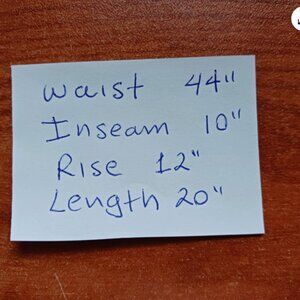 Waist 44"
Inseam 10"
Rise 12"
Length 20"